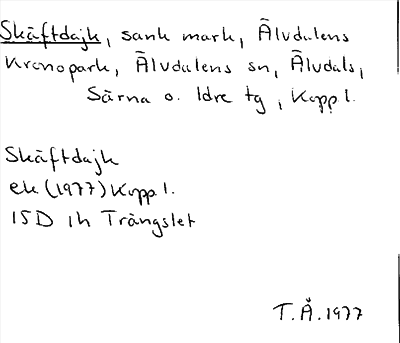 Skäftdajk, sank mark, Älvdalens
Kronopark, Älvdalens sn, Älvdals,
Särna o. Idre tg, Kopp l.
Skäftdajk
ek (1977) Kopp l.
15D 1h Trängslet
T.Å. 1977